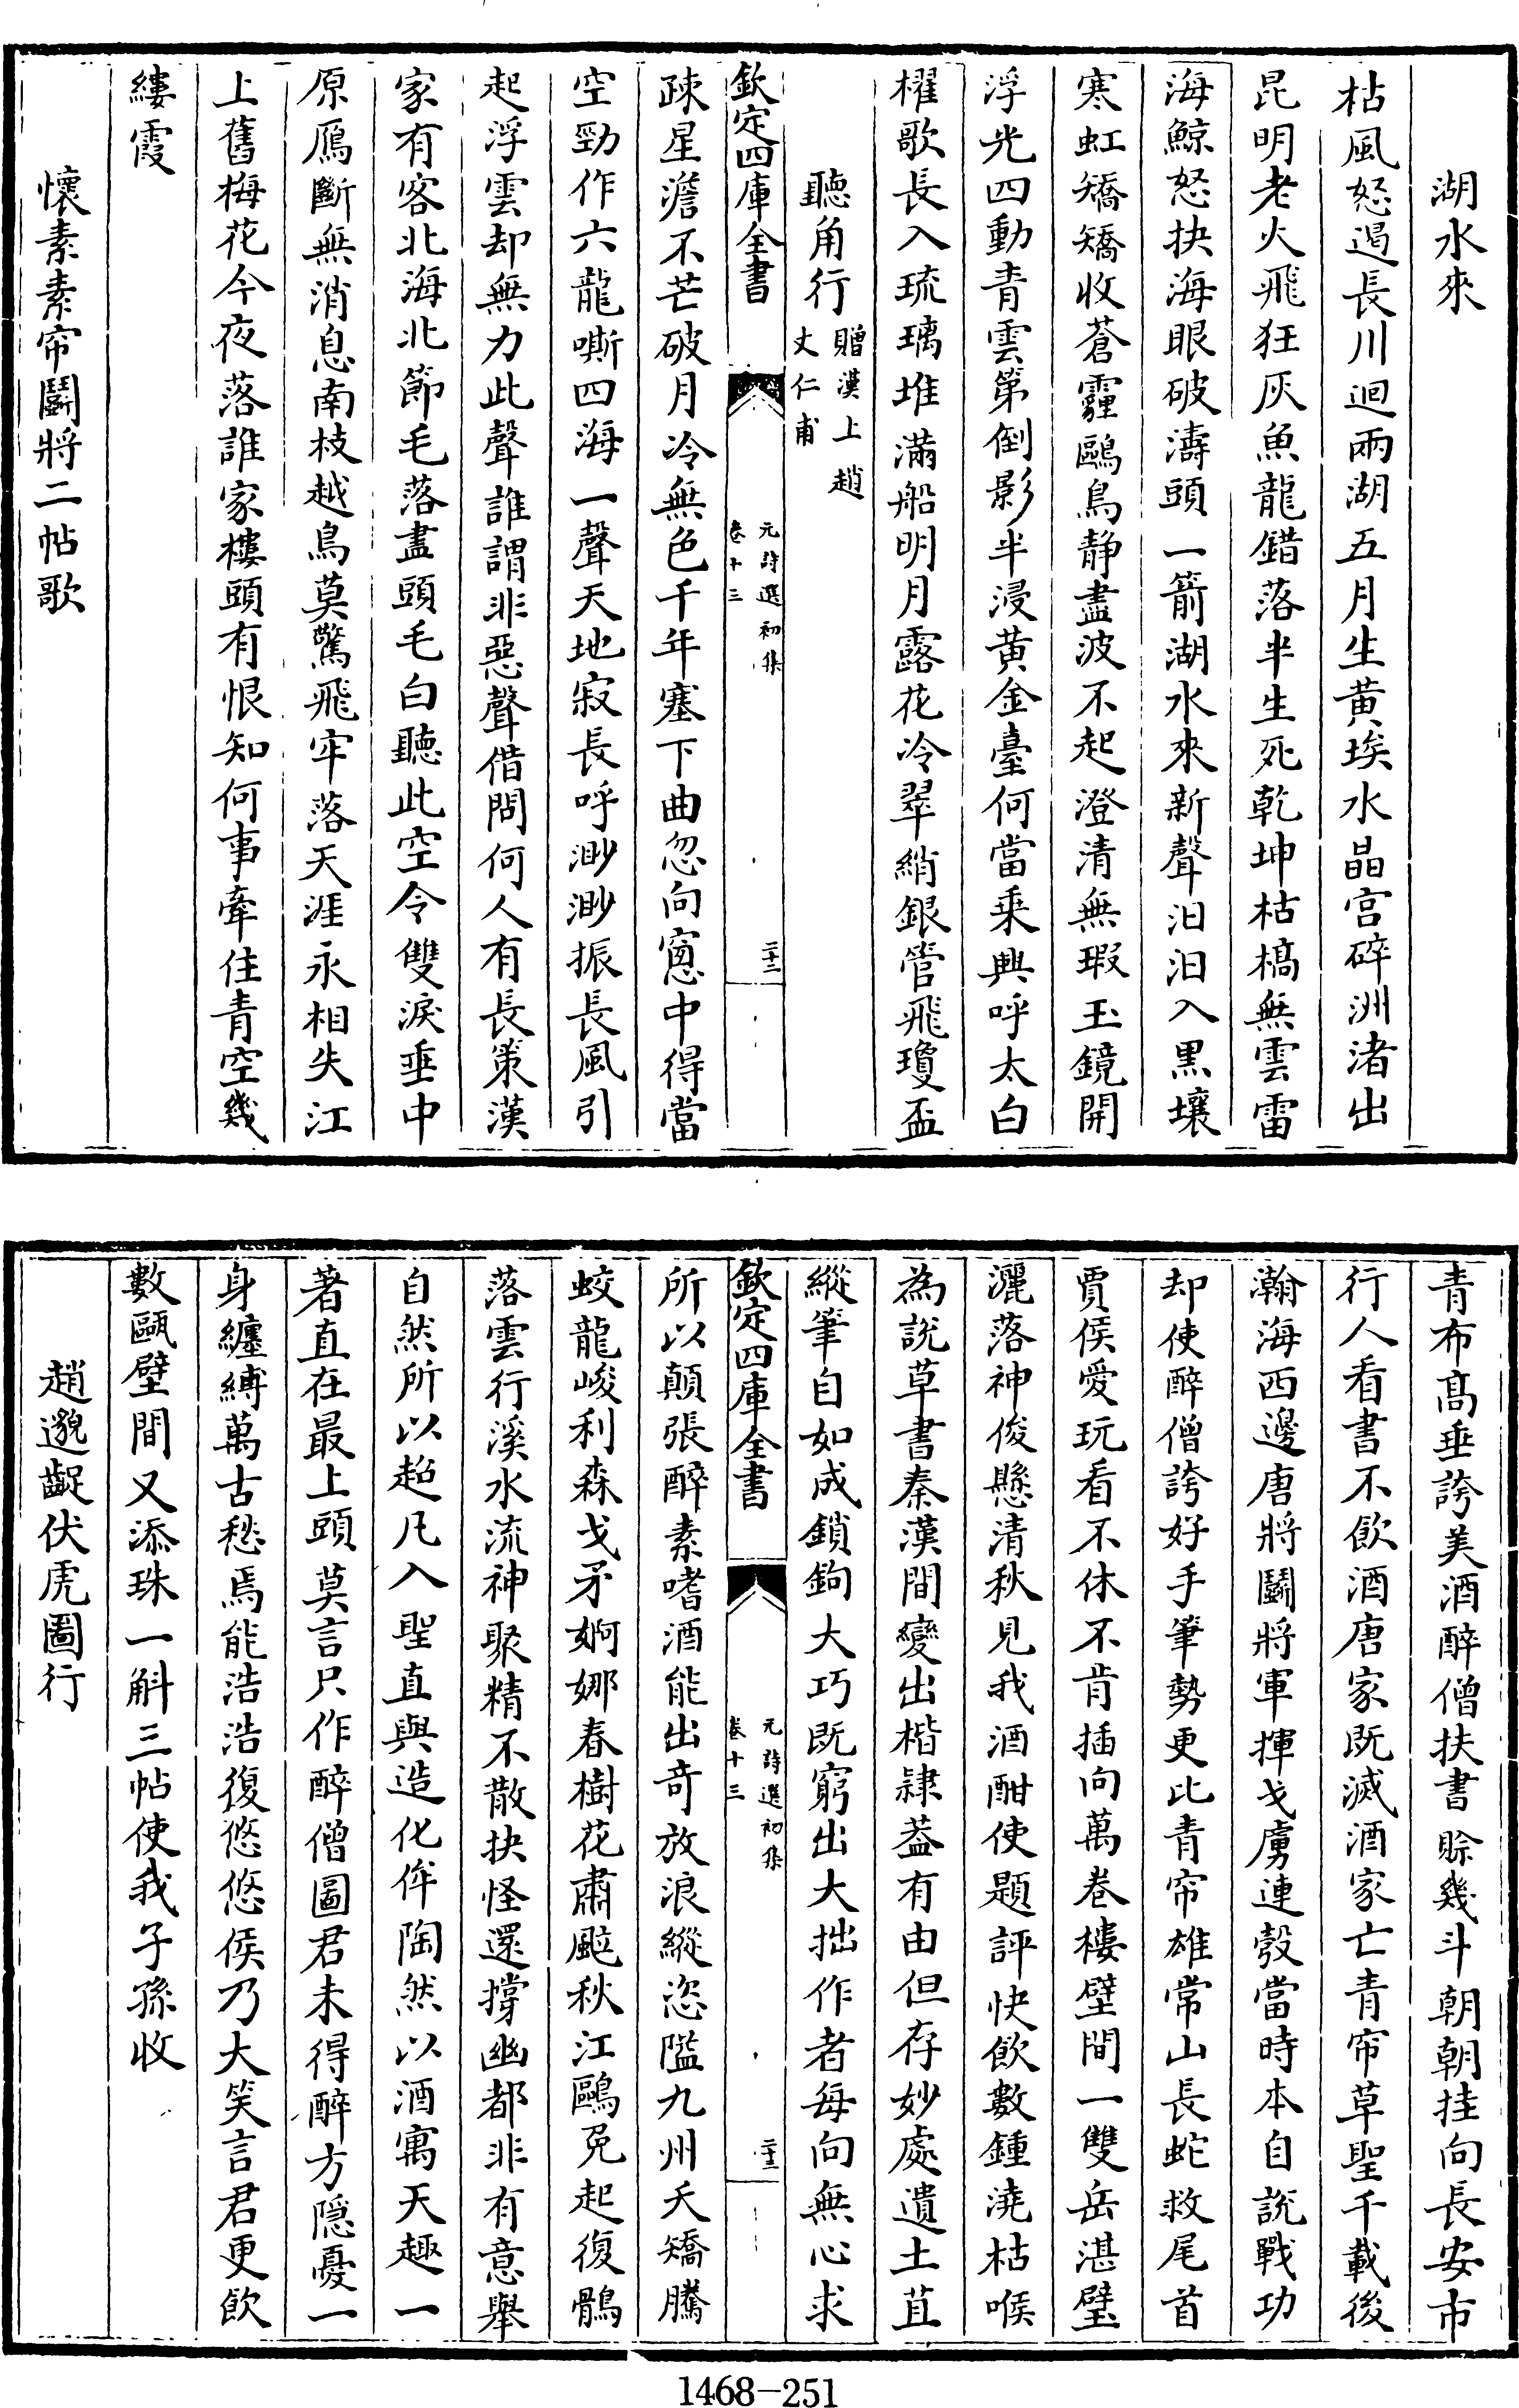 湖水來
枯風怒遏長川迴兩湖五月生黄埃水晶宫碎洲渚出
昆明老火飛狂灰魚龍錯落半生死乾坤枯槁無雲雷
海鯨怒抉海眼破濤頭一箭湖水來新聲汩汩入黒壤
寒虹矯矯收蒼霾鷗鳥静盡波不起澄清無瑕玉鏡開
浮光四動青雲第倒影半浸黄金臺何當乘興呼太白
櫂歌長入琉璃堆滿船明月露花冷翠綃銀管飛瓊盃
聽角行贈漢上趙丈仁甫
欽定四庫全書
元詩選初集
卷十三
二十二
疎星澹不芒破月冷無色千年塞下曲忽向窻中得當
空勁作六龍嘶四海一聲天地寂長呼渺渺振長風引
起浮雲却無力此聲誰謂非惡聲借問何人有長策漢
家有客北海北節毛落盡頭毛白聽此空令雙淚垂中
原鴈斷無消息南枝越鳥莫驚飛牢落天涯永相失江
上舊梅花今夜落誰家樓頭有恨知何事牽住青空幾
縷霞
懷素素帘鬭將二帖歌
青布髙垂誇美酒醉僧扶書賒幾斗朝朝挂向長安市
行人看書不飲酒唐家既滅酒家亡青帘草聖千載後
瀚海西邊唐將鬭將軍揮戈虜連彀當時本自說戰功
却使醉僧誇好手筆勢更比青帘雄常山長蛇救尾首
賈侯愛玩看不休不肯插向萬卷樓壁間一雙岳湛璧
灑落神俊懸清秋見我酒酣使題評快飲數鍾澆枯喉
為說草書秦漢間變出楷隷葢有由但存妙處遺土苴
縱筆自如成鎖鉤大巧既窮出大拙作者每向無心求
欽定四庫全書
元詩選初集
卷十三
二十三
所以顛張醉素嗜酒能出竒放浪縱恣隘九州夭矯騰
蛟龍峻利森戈矛婀娜春樹花肅颭秋江鷗兎起復鶻
落雲行溪水流神聚精不散抉怪還撐幽都非有意舉
自然所以超凡入聖直與造化侔陶然以酒寓天趣一
著直在最上頭莫言只作醉僧圖君未得醉方隠憂一
身纏縛萬古愁焉能浩浩復悠悠侯乃大笑言君更飲
數甌壁間又添珠一斛三帖使我子孫收
趙邈齪伏虎圖行
1468-251